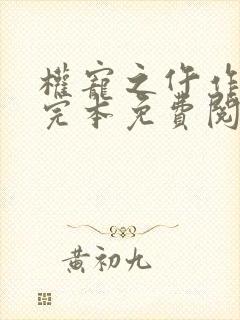 權寵之仵作
完本免費閱
黃初九